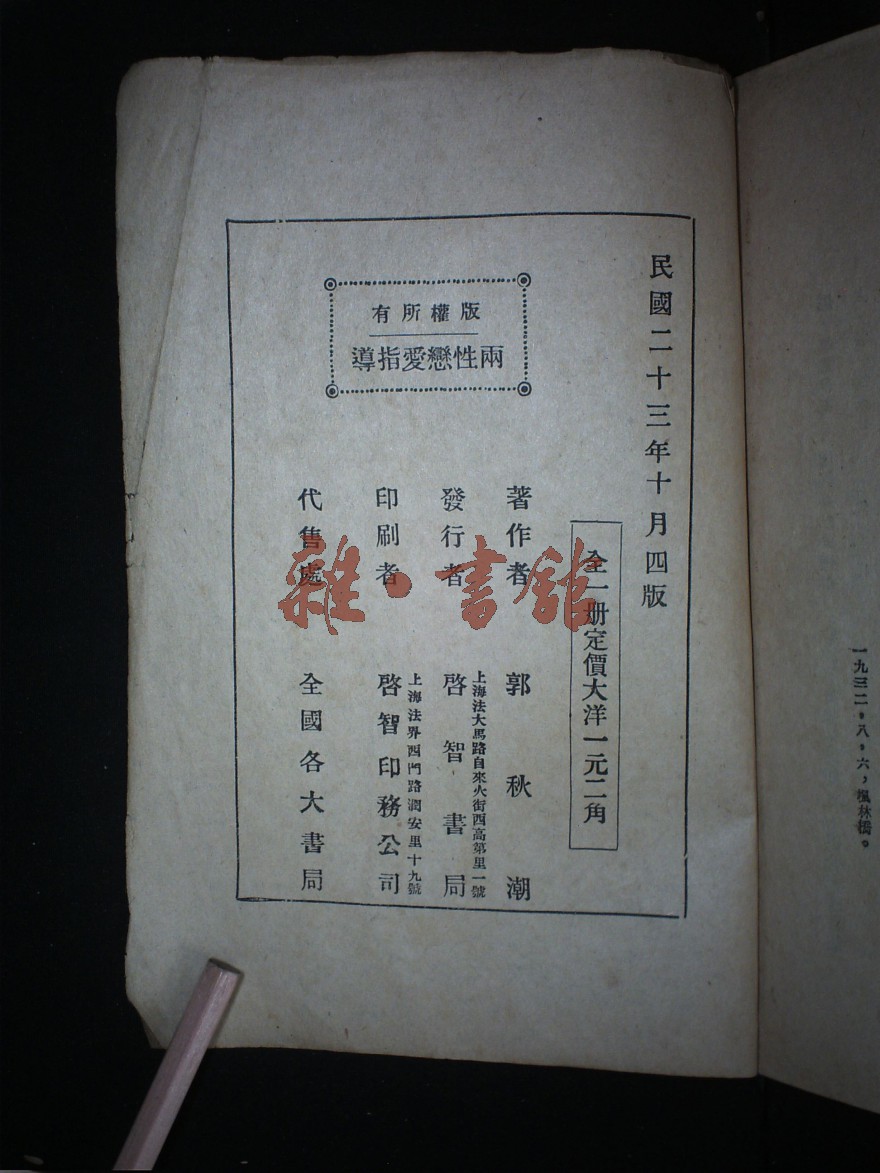 民國二十三年十月四版
全一册定價大洋一元二角
著作者 郭秋潮
上海法大馬路自來火街西高第里一號
發行者 啓智書局
上海法界西門路潤安里十九號
印刷者 啓智印務公司
代售處 全國各大書局
版權所有
兩性戀愛指導
雜·書館
一九三二，八，六，楓林橋。